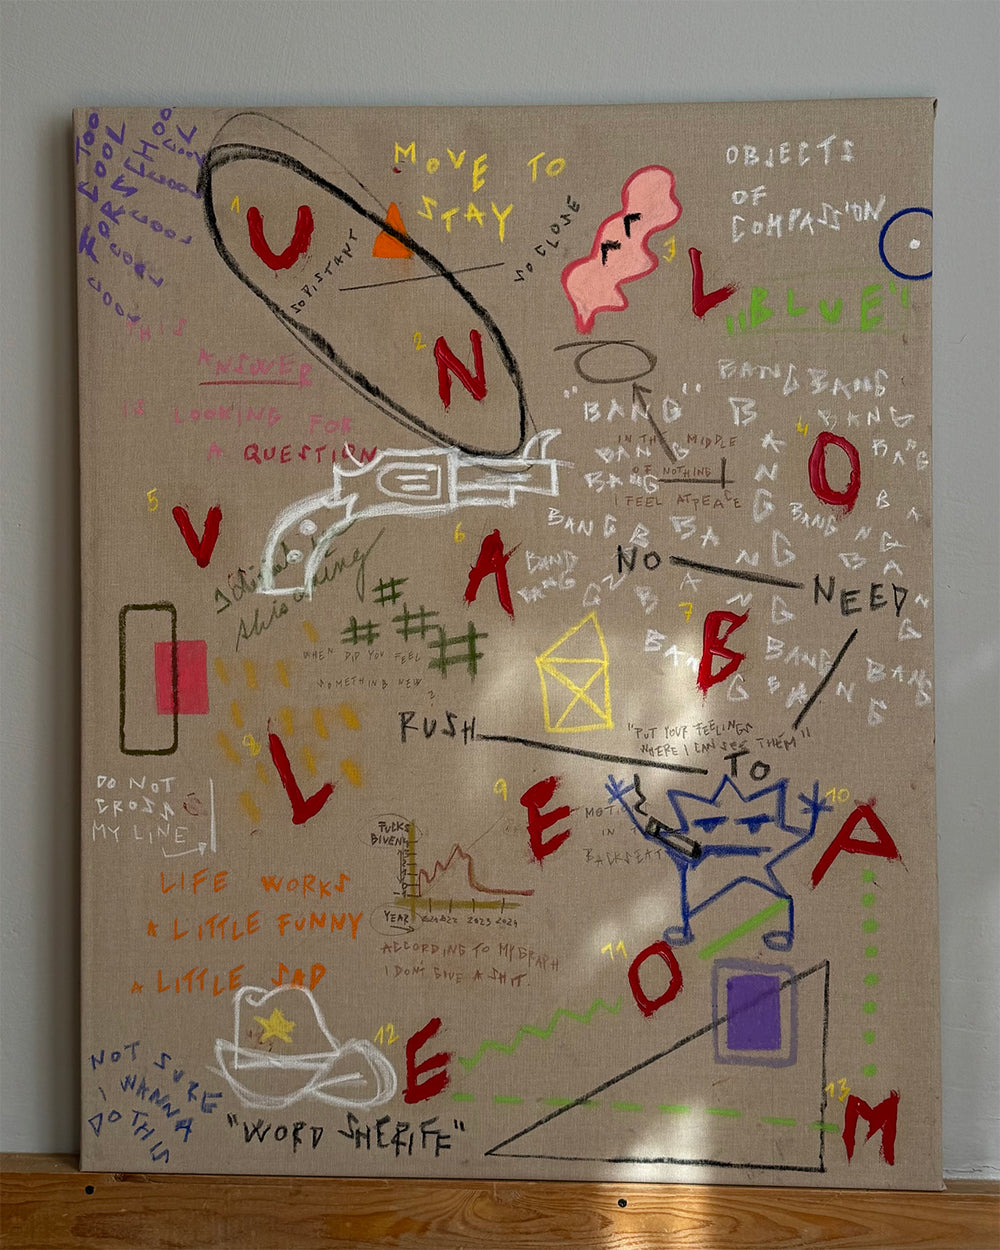 TOO
COOL
FOR S
CHOO
L
COOL
COOL
COOL
COOL
COOL
COOL
MOVE TO
STAY
OBJECTS
OF
COMPASSION
"BLUE"
1 U
SO DISTANT
SO CLOSE
2 N
3 L
THIS
ANSWER
IS LOOKING FOR
A QUESTION
BANG BANG
"BANG"
BANG
BANG
BANG
BANG
BANG
IN THE MIDDLE
OF NOTHING
I FEEL AT PEACE
4 O
BANG
BANG
BANG
BANG
5 V
6 A
NO
NEED
7 B
WHEN DID YOU FEEL
SOMETHING NEW
?
RUSH
TO
BANG
BANG
BANG
"PUT YOUR FEELINGS
WHERE I CAN SEE THEM"
8 L
DO NOT
CROSS
MY LINE
9 E
MOTIO
IN T
BACKSEAT
10 A
FUCKS
GIVEN
YEAR
2021 2022 2023 2024
ACCORDING TO MY GRAPH
I DON'T GIVE A SHIT.
LIFE WORKS
A LITTLE FUNNY
A LITTLE SAD
11 O
12 E
13 M
NOT SURE
I WANNA
DO THIS
"WORD SHERIFF"